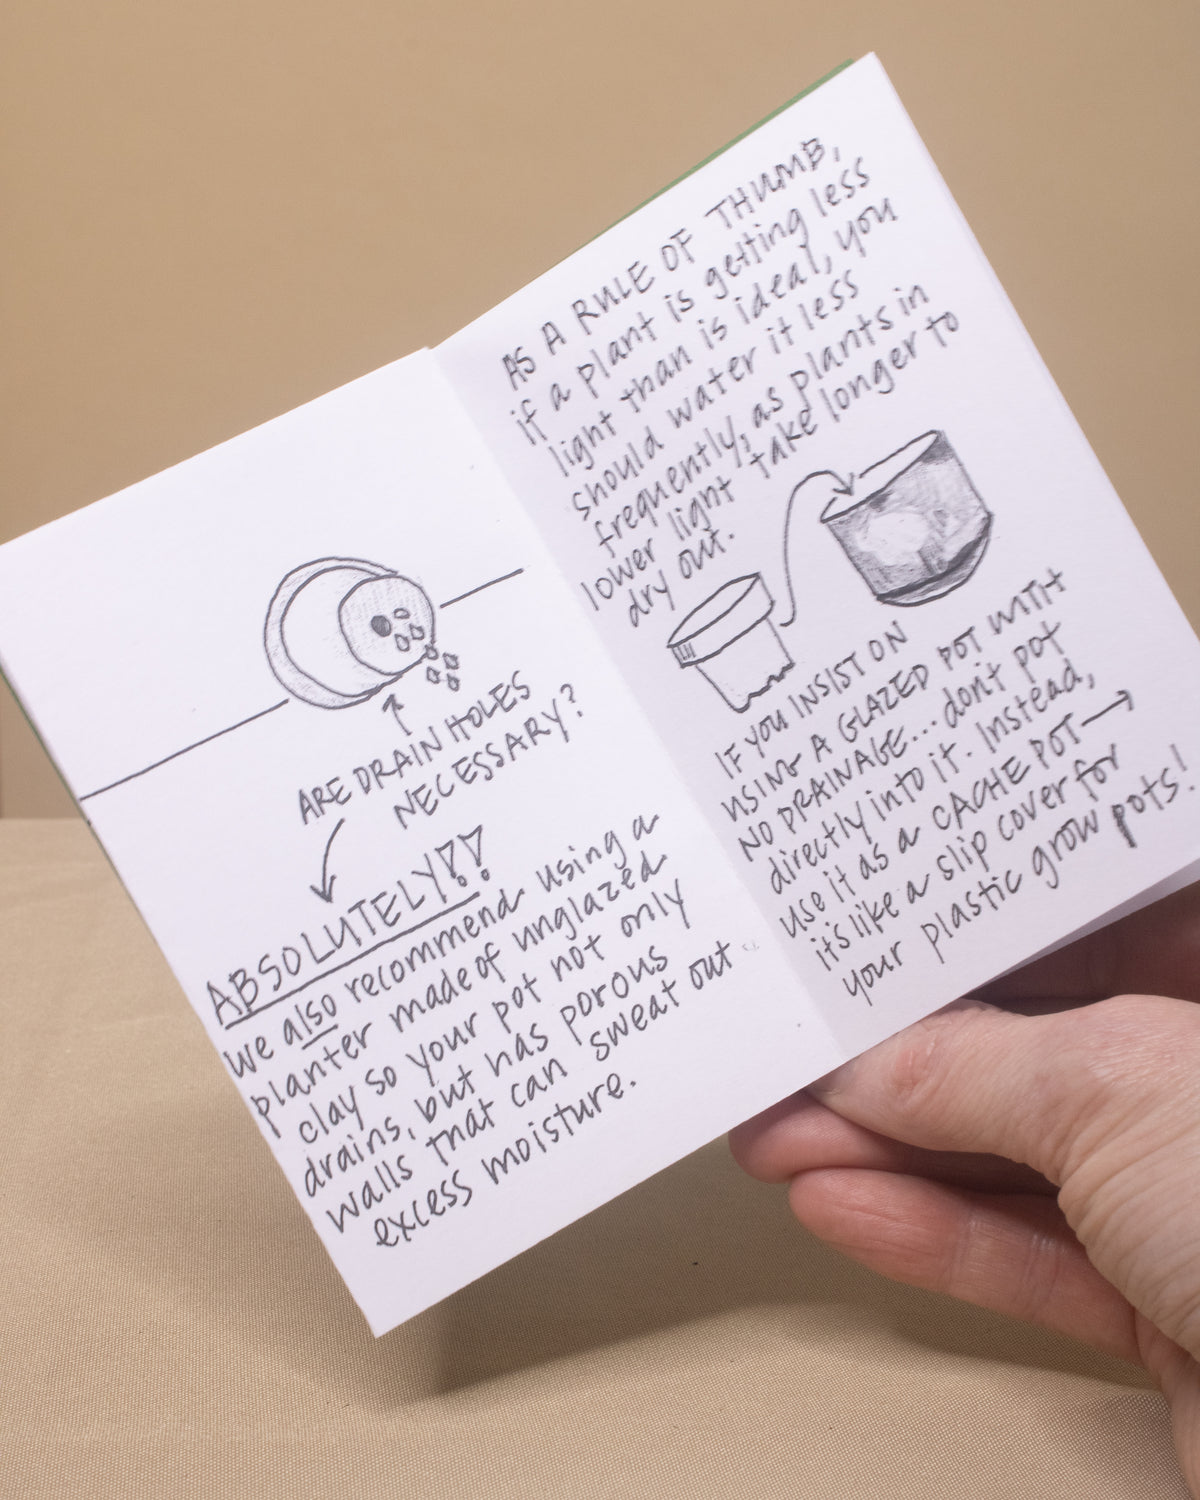 ARE DRAIN HOLES
NECESSARY?
ABSOLUTELY!!
we also recommend using a
planter made of unglazed
clay so your pot not only
drains, but has porous
walls that can sweat out
excess moisture.
AS A RULE OF THUMB,
if a plant is getting less
light than is ideal, you
should water it less
frequently, as plants in
lower light take longer to
dry out.
IF YOU INSIST ON
USING A GLAZED POT WITH
NO DRAINAGE... don't pot
directly into it. Instead,
use it as a CACHE POT →
it's like a slip cover for
your plastic grow pots!